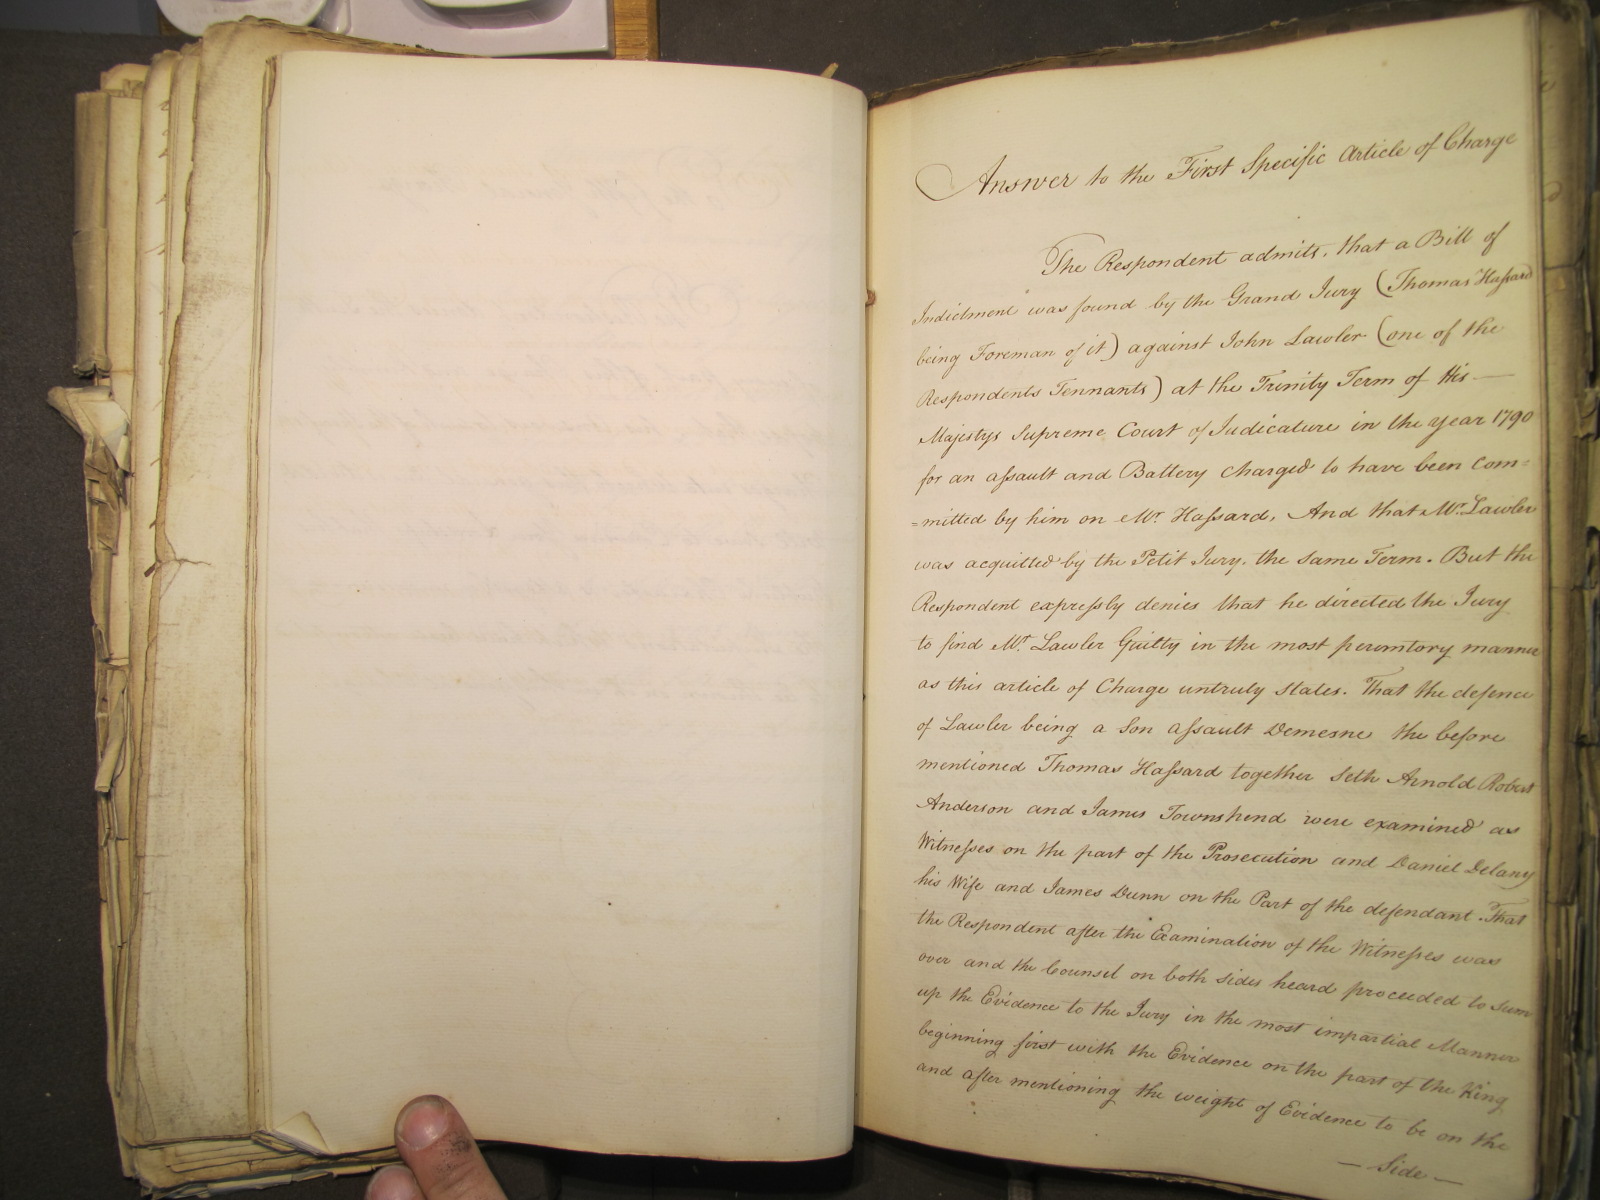 Answer to the First Specific Article of Charge
The Respondent admits, that a Bill of
Indictment was found by the Grand Jury (Thomas Hassard
being Foreman of it) against John Lawler (one of the
Respondents Tennants) at the Trinity Term of His —
Majestys Supreme Court of Judicature in the year 1790
for an assault and Battery charged to have been com=
=mitted by him on Mr. Hassard, And that Mr. Lawler
was acquitted by the Petit Jury. the same Term. But the
Respondent expressly denies that he directed the Jury
to find Mr. Lawler Guilty in the most peremtory manner
as this article of Charge untruly states. That the defence
of Lawler being a Son assault Demesne the before
mentioned Thomas Hassard together Seth Arnold Robert
Anderson and James Townshend were examined as
Witnesses on the part of the Prosecution and Daniel Delany
his Wife and James Dunn on the Part of the defendant. That
the Respondent after the Examination of the Witnesses was
over and the Counsel on both sides heard proceeded to sum
up the Evidence to the Jury in the most impartial Manner
beginning first with the Evidence on the part of the King
and after mentioning the weight of Evidence to be on the
— Side —